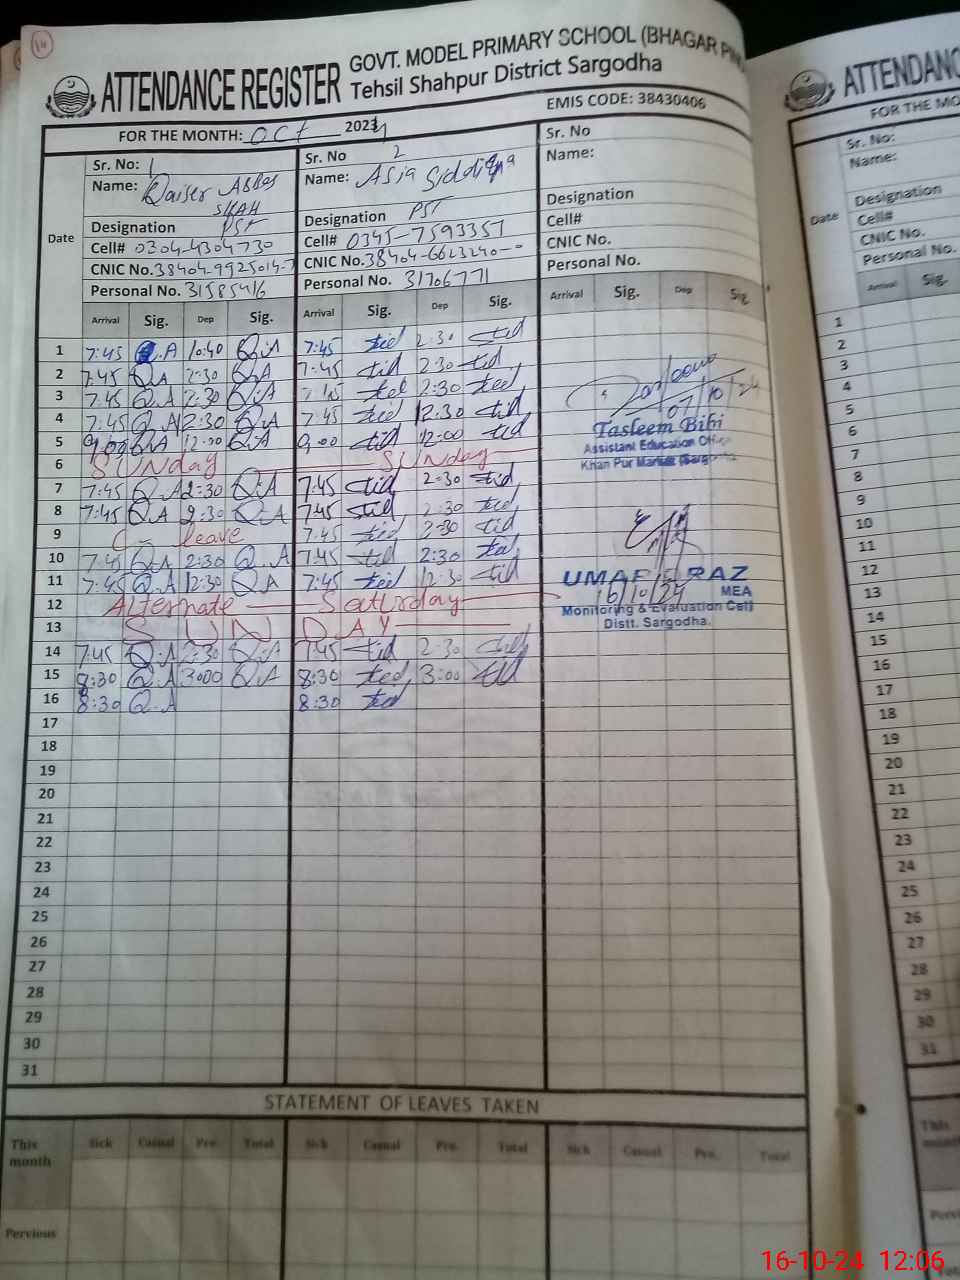 ATTENDANCE REGISTER
GOVT. MODEL PRIMARY SCHOOL (BHAGAR
Tehsil Shahpur District Sargodha
EMIS CODE: 38430406
FOR THE MONTH: OCT 2024
Date
Sr. No: 1
Name: Qaiser Abbas
SHAH
Designation PST
Cell# 0304-4304730
CNIC No. 38404-9925014-7
Personal No. 31585416
Sr. No 2
Name: Asia Siddiqa
Designation PST
Cell# 0345-7593357
CNIC No. 38404-6623240-0
Personal No. 31706771
Sr. No
Name:
Designation
Cell#
CNIC No.
Personal No.
Arrival Sig. Dep Sig. Arrival Sig. Dep Sig. Arrival Sig. Dep Sig.
1 7:45 Q.A 10:40 Q.A 7:45 2:30
2 7:45 Q.A 2:30 Q.A 7:45 2:30
3 7:45 Q.A 2:30 Q.A 7:45 2:30
4 7:45 Q.A 12:30 Q.A 7:45 12:30
5 9:00 Q.A 12:00 Q.A 9:00 12:00
6 SUNday SUNday
7 7:45 Q.A 2:30 Q.A 7:45 2:30
8 7:45 Q.A 2:30 Q.A 7:45 2:30
9 C leave 7:45 2:30
10 7:45 Q.A 2:30 Q.A 7:45 2:30
11 7:45 Q.A 12:30 Q.A 7:45 12:30
12 Alternate Saturday
13 SUNDAY
14 7:45 Q.A 2:30 Q.A 7:45 2:30
15 8:30 Q.A 3:00 Q.A 8:30 3:00
16 8:30 Q.A 8:30
17
18
19
20
21
22
23
24
25
26
27
28
29
30
31
07/10/24
Tasleem Bibi
Assistant Education Officer
Khan Pur
16/10/24
UMAR
MEA
Monitoring & Evaluation Cell
Distt. Sargodha.
STATEMENT OF LEAVES TAKEN
This month
Sick Casual Pre. Total Sick Casual Pre. Total Sick Casual Pre. Total
Pervious
ATTENDANC
FOR THE MO
Date
Sr. No:
Name:
Designation
Cell#
CNIC No.
Personal No.
Arrival Sig.
1
2
3
4
5
6
7
8
9
10
11
12
13
14
15
16
17
18
19
20
21
22
23
24
25
26
27
28
29
30
31
16-10-24 12:06